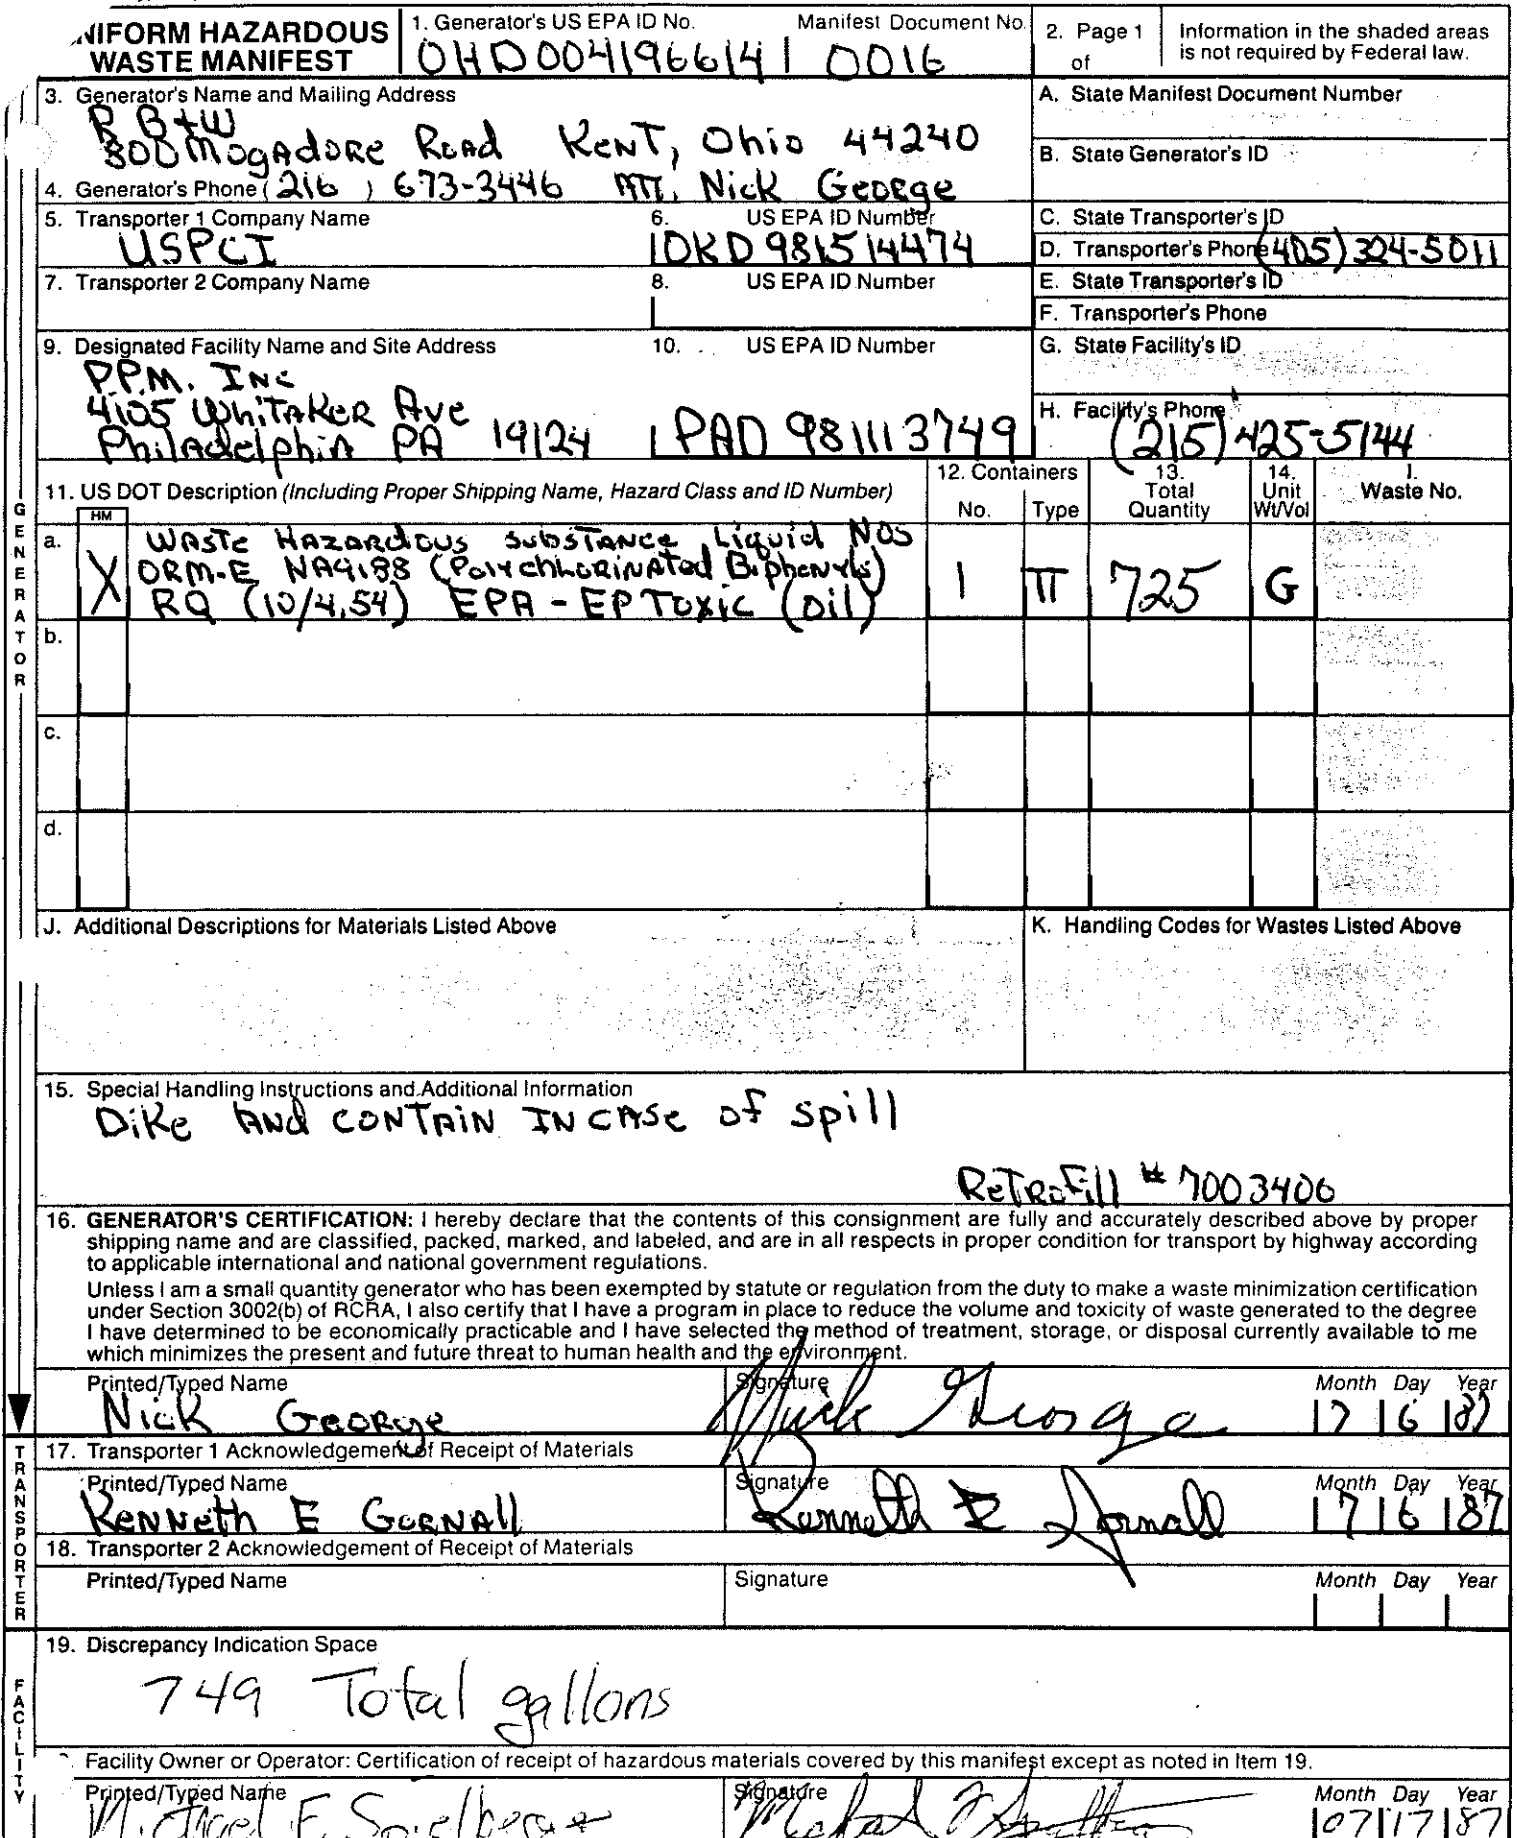 NIFORM HAZARDOUS
WASTE MANIFEST
1. Generator's US EPA ID No.
OHD004196614
Manifest Document No.
0016
2. Page 1
of
Information in the shaded areas
is not required by Federal law.
3. Generator's Name and Mailing Address
R B+W
800 Mogadore Road Kent, Ohio 44240
A. State Manifest Document Number
B. State Generator's ID
4. Generator's Phone ( 216 ) 673-3446 ATT. Nick George
5. Transporter 1 Company Name
USPCI
6. US EPA ID Number
OKD981514474
C. State Transporter's ID
D. Transporter's Phone (405) 324-5011
7. Transporter 2 Company Name
8. US EPA ID Number
E. State Transporter's ID
F. Transporter's Phone
9. Designated Facility Name and Site Address
P.P.M. Inc
4105 Whitaker Ave
Philadelphia PA 19124
10. US EPA ID Number
PAD 981113749
G. State Facility's ID
H. Facility's Phone
(215) 425-5144
11. US DOT Description (Including Proper Shipping Name, Hazard Class and ID Number)
12. Containers
No. Type
13.
Total
Quantity
14.
Unit
Wt/Vol
I.
Waste No.
HM
GENERATOR
a. X
Waste Hazardous Substance Liquid NOS
ORM-E NA9188 (Polychlorinated Biphenyls)
RQ (10/4.54) EPA - EP Toxic (oil)
1 TT 725 G
b.
c.
d.
J. Additional Descriptions for Materials Listed Above
K. Handling Codes for Wastes Listed Above
15. Special Handling Instructions and Additional Information
Dike and contain in case of spill
Retrofill # 7003406
16. GENERATOR'S CERTIFICATION: I hereby declare that the contents of this consignment are fully and accurately described above by proper
shipping name and are classified, packed, marked, and labeled, and are in all respects in proper condition for transport by highway according
to applicable international and national government regulations.
Unless I am a small quantity generator who has been exempted by statute or regulation from the duty to make a waste minimization certification
under Section 3002(b) of RCRA, I also certify that I have a program in place to reduce the volume and toxicity of waste generated to the degree
I have determined to be economically practicable and I have selected the method of treatment, storage, or disposal currently available to me
which minimizes the present and future threat to human health and the environment.
Printed/Typed Name
Nick George
Signature
Nick George
Month Day Year
7 6 87
TRANSPORTER
17. Transporter 1 Acknowledgement of Receipt of Materials
Printed/Typed Name
Kenneth E Gornall
Signature
Kenneth E Gornall
Month Day Year
7 6 87
18. Transporter 2 Acknowledgement of Receipt of Materials
Printed/Typed Name
Signature
Month Day Year
FACILITY
19. Discrepancy Indication Space
749 Total gallons
Facility Owner or Operator: Certification of receipt of hazardous materials covered by this manifest except as noted in Item 19.
Printed/Typed Name
Michael F. Spielberger
Signature
Month Day Year
07 17 87